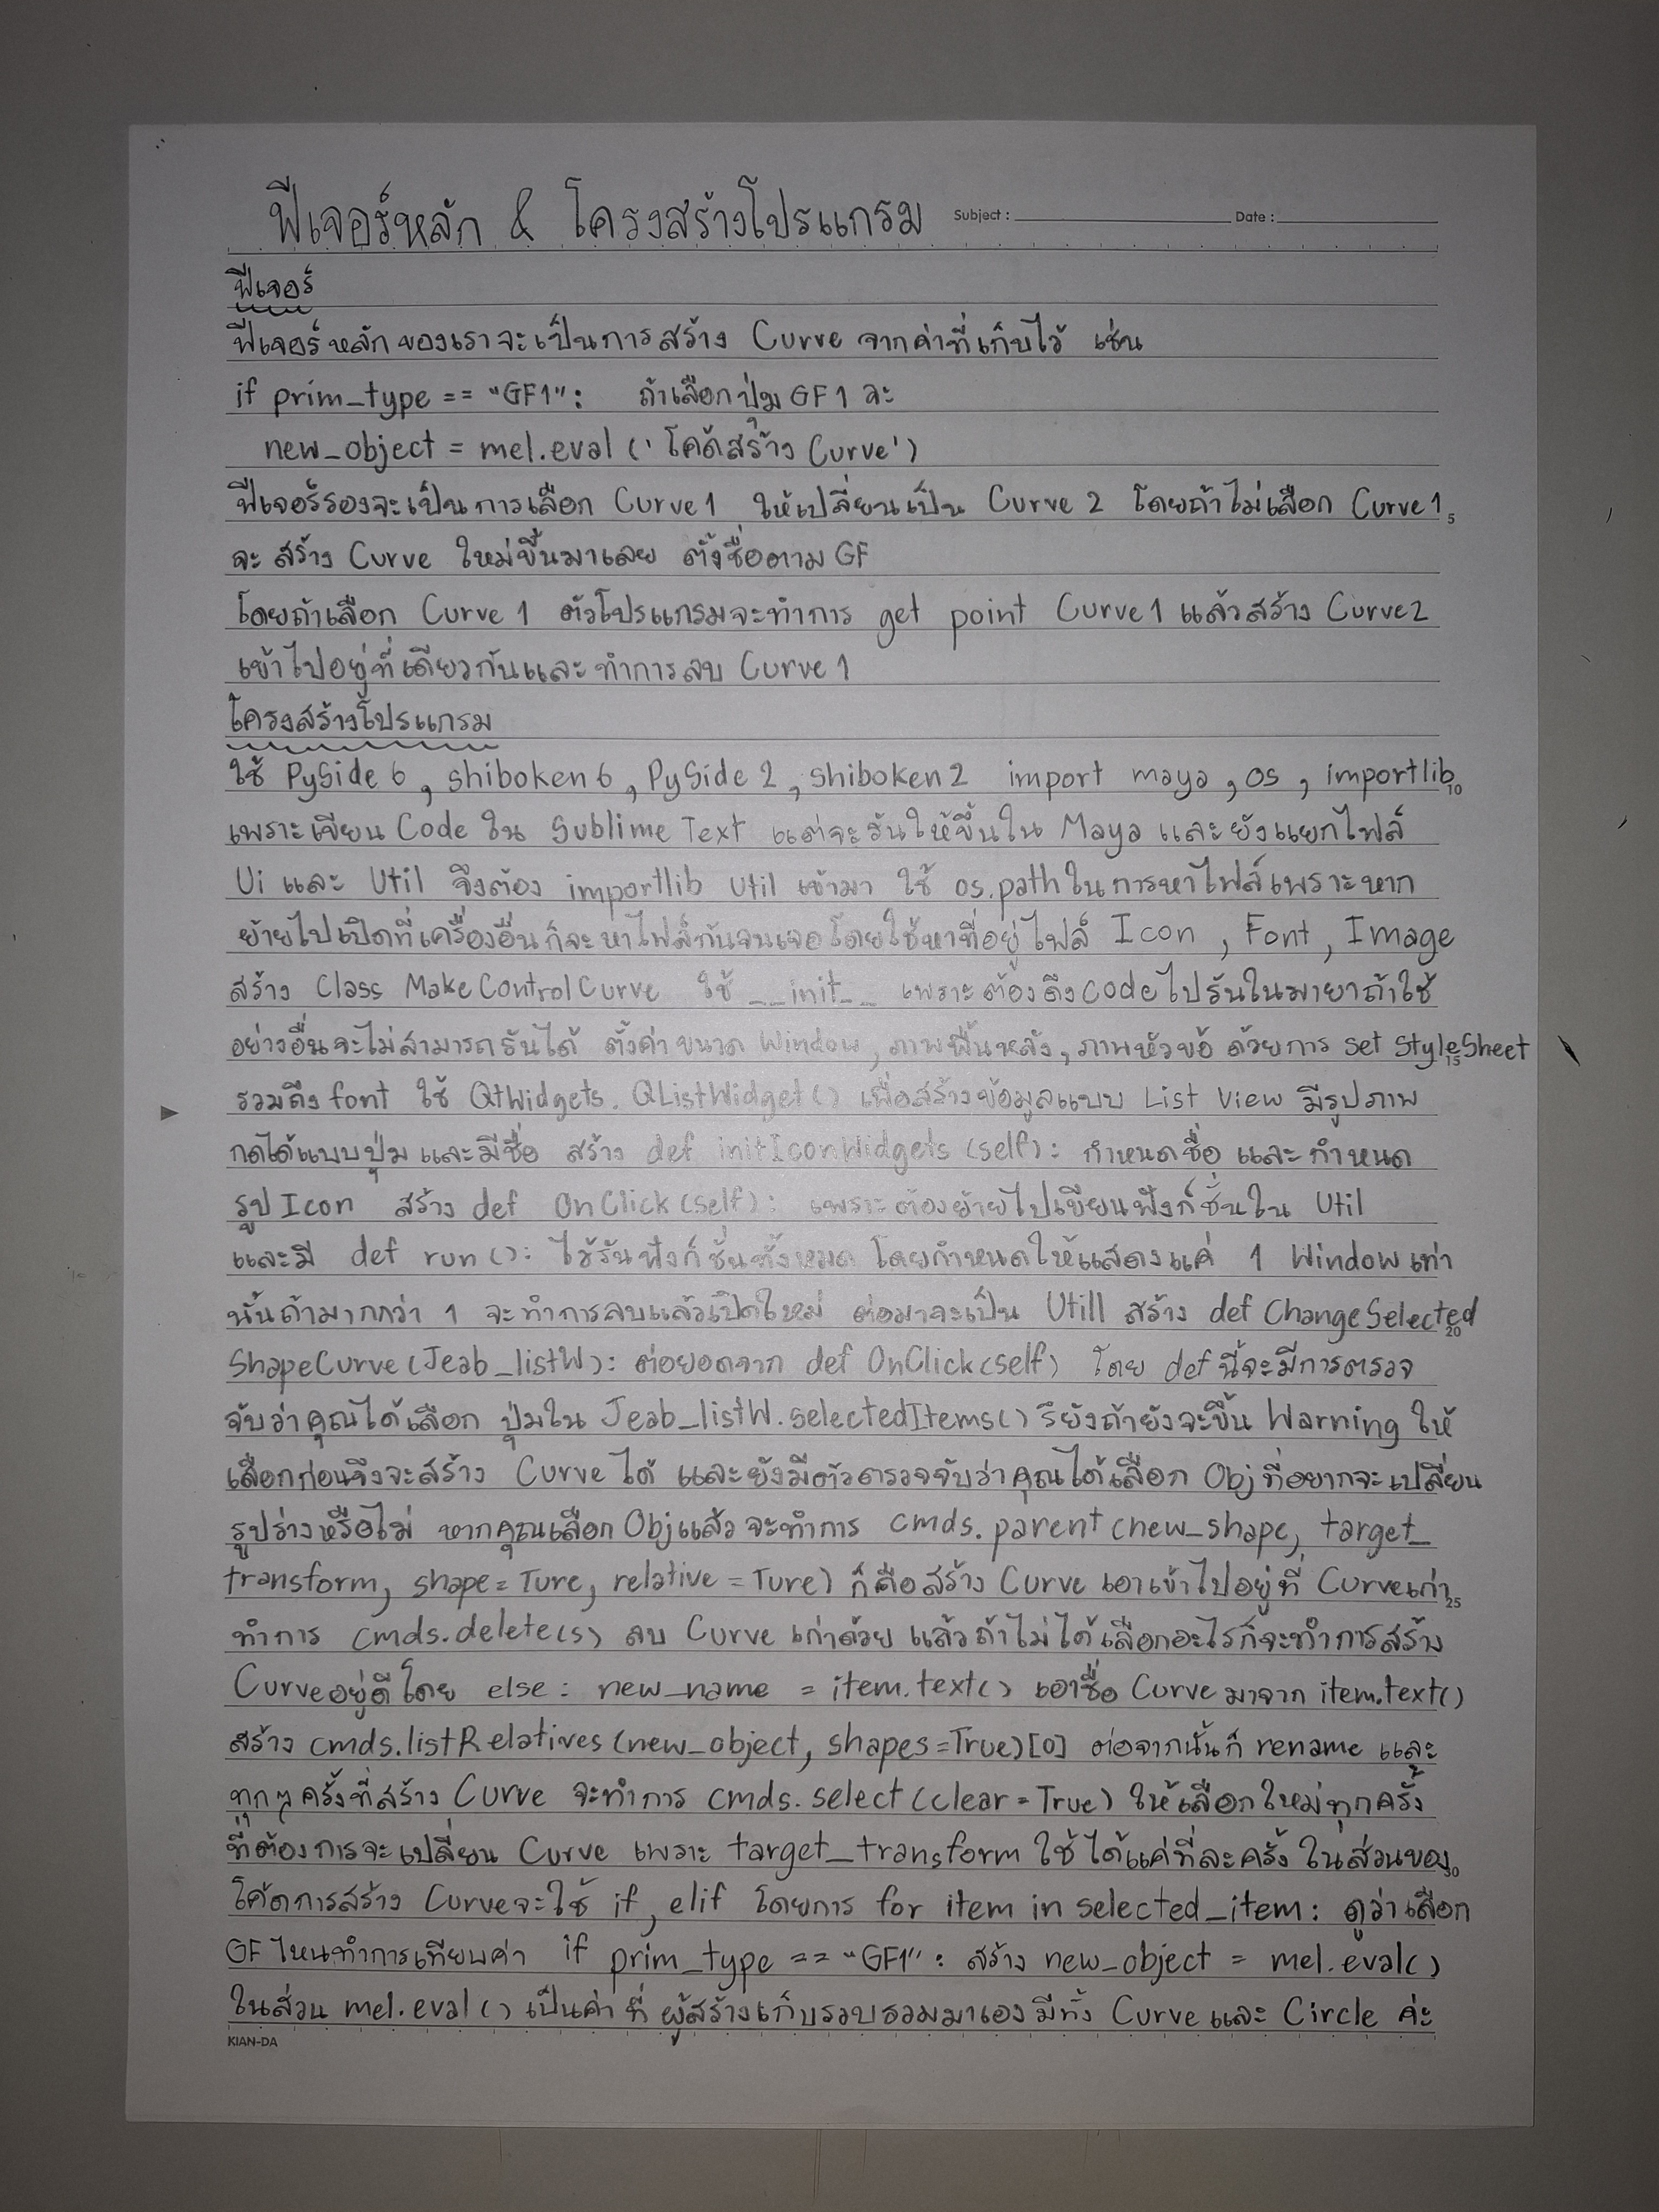 ฟีเจอร์หลัก & โครงสร้างโปรแกรม Subject : Date :
ฟีเจอร์
ฟีเจอร์หลักของเราจะเป็นการสร้าง Curve จากค่าที่เก็บไว้ เช่น
if prim_type == "GF1": ถ้าเลือกปุ่ม GF1 ละ
new_object = mel.eval ('โค้ดสร้าง Curve')
ฟีเจอร์รองจะเป็นการเลือก Curve1 ให้เปลี่ยนเป็น Curve 2 โดยถ้าไม่เลือก Curve1 5
จะ สร้าง Curve ใหม่ขึ้นมาเลย ตั้งชื่อตาม GF
โดยถ้าเลือก Curve 1 ตัวโปรแกรมจะทำการ get point Curve1 แล้วสร้าง Curve2
เข้าไปอยู่ที่เดียวกันและทำการลบ Curve1
โครงสร้างโปรแกรม
ใช้ PySide6 , shiboken6 , PySide2 , shiboken2 import maya , os , importlib 10
เพราะเขียน Code ใน Sublime Text แต่จะรันให้ขึ้นใน Maya และยังแยกไฟล์
Ui และ Util จึงต้อง importlib util เข้ามา ใช้ os.path ในการหาไฟล์เพราะหาก
ย้ายไปเปิดที่เครื่องอื่นก็จะหาไฟล์กันจนเจอโดยใช้หาที่อยู่ไฟล์ Icon , Font , Image
สร้าง Class MakeControlCurve ใช้ __init__ เพราะต้องดึงcodeไปรันในมายาถ้าใช้
อย่างอื่นจะไม่สามารถรันได้ ตั้งค่าขนาด Window, ภาพพื้นหลัง, ภาพหัวข้อ ด้วยการ set StyleSheet 15
รวมถึง font ใช้ QtWidgets. QListWidget() เพื่อสร้างข้อมูลแบบ List View มีรูปภาพ
กดได้แบบปุ่ม และมีชื่อ สร้าง def initIconWidgets (self): กำหนดชื่อ และกำหนด
รูป Icon สร้าง def OnClick(self): เพราะต้องย้ายไปเขียนฟังก์ชั่นใน Util
และมี def run(): ไว้รันฟังก์ชั่นทั้งหมด โดยกำหนดให้แสดงแค่ 1 Window เท่า
นั้นถ้ามากกว่า 1 จะทำการลบแล้วเปิดใหม่ ต่อมาจะเป็น Utill สร้าง def ChangeSelected 20
ShapeCurve(Jeab_listW): ต่อยอดจาก def OnClick(self) โดย defนี้จะมีการตรวจ
จับว่าคุณได้เลือก ปุ่มใน Jeab_listW.selectedItems() รึยังถ้ายังจะขึ้น Warning ให้
เลือกก่อนจึงจะสร้าง Curve ได้ และยังมีตัวตรวจจับว่าคุณได้เลือก Obj ที่อยากจะเปลี่ยน
รูปร่างหรือไม่ หากคุณเลือก Objแล้ว จะทำการ cmds.parent (new_shape, target_
transform, shape=Ture, relative=Ture) ก็คือสร้าง Curve เอาเข้าไปอยู่ที่ Curveเก่า 25
ทำการ cmds.delete(s) ลบ Curve เก่าด้วย แล้วถ้าไม่ได้เลือกอะไรก็จะทำการสร้าง
Curveอยู่ดีโดย else: new_name = item.text() เอาชื่อ Curve มาจาก item.text()
สร้าง cmds.listRelatives(new_object, shapes=True)[0] ต่อจากนั้นก็ rename และ
ทุกๆ ครั้งที่สร้าง Curve จะทำการ cmds.select (clear=True) ให้เลือกใหม่ทุกครั้ง
ที่ต้องการจะเปลี่ยน Curve เพราะ target_transform ใช้ได้แค่ที่ละครั้ง ในส่วนของ 30
โค้ดการสร้าง Curveจะใช้ if, elif โดยการ for item in selected_item: ดูว่าเลือก
GF ไหนทำการเทียบค่า if prim_type == "GF1": สร้าง new_object = mel.eval()
ในส่วน mel.eval() เป็นค่าที่ ผู้สร้างเก็บรวบรวมมาเองมีทั้ง Curve และ Circle ค่ะ
KIAN-DA